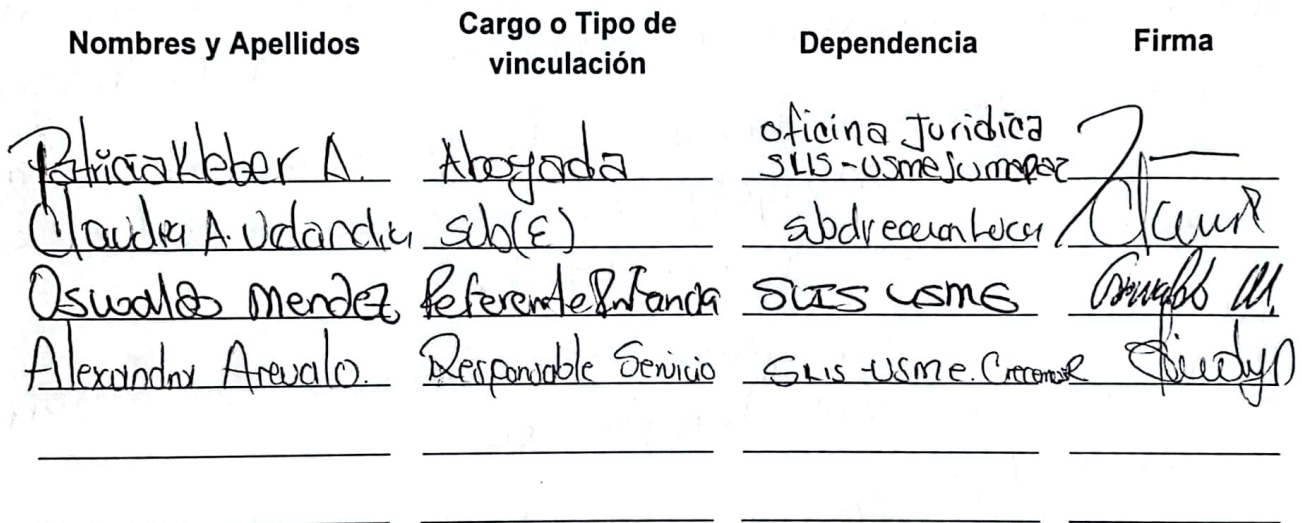 Nombres y Apellidos
Cargo o Tipo de
vinculación
Dependencia
Firma
Patricia Kleber A.
Abogada
oficina Juridica
SLIS - Usme Sumapaz
Claudia A.
Sub(E)
Oswaldo Mendez
Referente Infancia
SLIS USME
Oswaldo M.
Alexandra Arevalo.
Responsable Servicio
SLIS -USME.